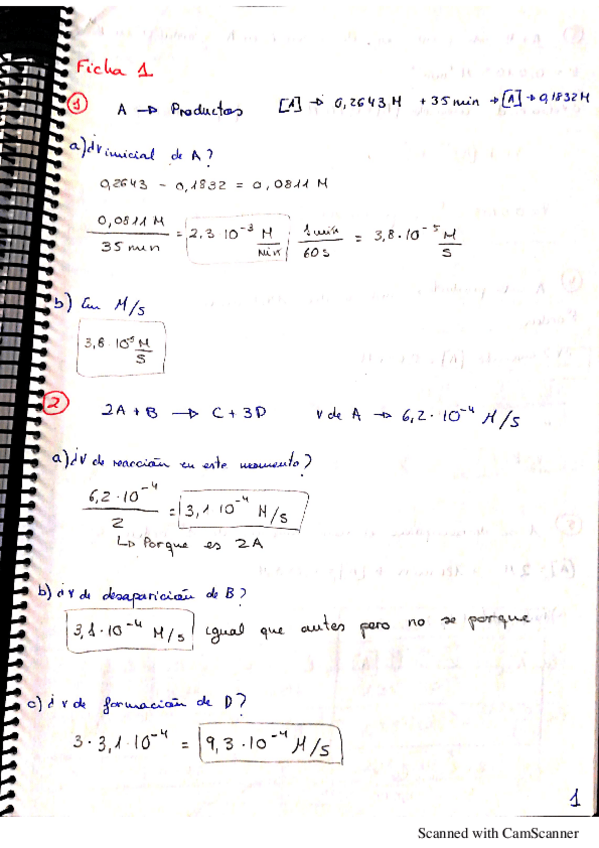 Ficha 1
① A → Productos [A] → 0,2643 M + 35 min → [A] → 0,1832 M
a) ¿v inicial de A?
0,2643 - 0,1832 = 0,0811 M
0,0811 M / 35 min = 2,3 10⁻³ M/min 1 min / 60 s = 3,8 · 10⁻⁵ M/s
b) En M/s
3,8 · 10⁻⁵ M/s
② 2A + B → C + 3D v de A → 6,2 · 10⁻⁴ M/s
a) ¿v de reacción en este momento?
6,2 · 10⁻⁴ / 2 = 3,1 10⁻⁴ M/s
↳ Porque es 2A
b) ¿v de desaparición de B?
3,1 · 10⁻⁴ M/s igual que antes pero no se porque
c) ¿v de formación de D?
3 · 3,1 · 10⁻⁴ = 9,3 · 10⁻⁴ M/s
1
Scanned with CamScanner